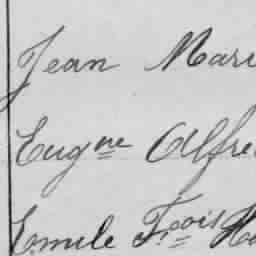 Jean Mari
Eug^ne Alfre
Emile F^ois H